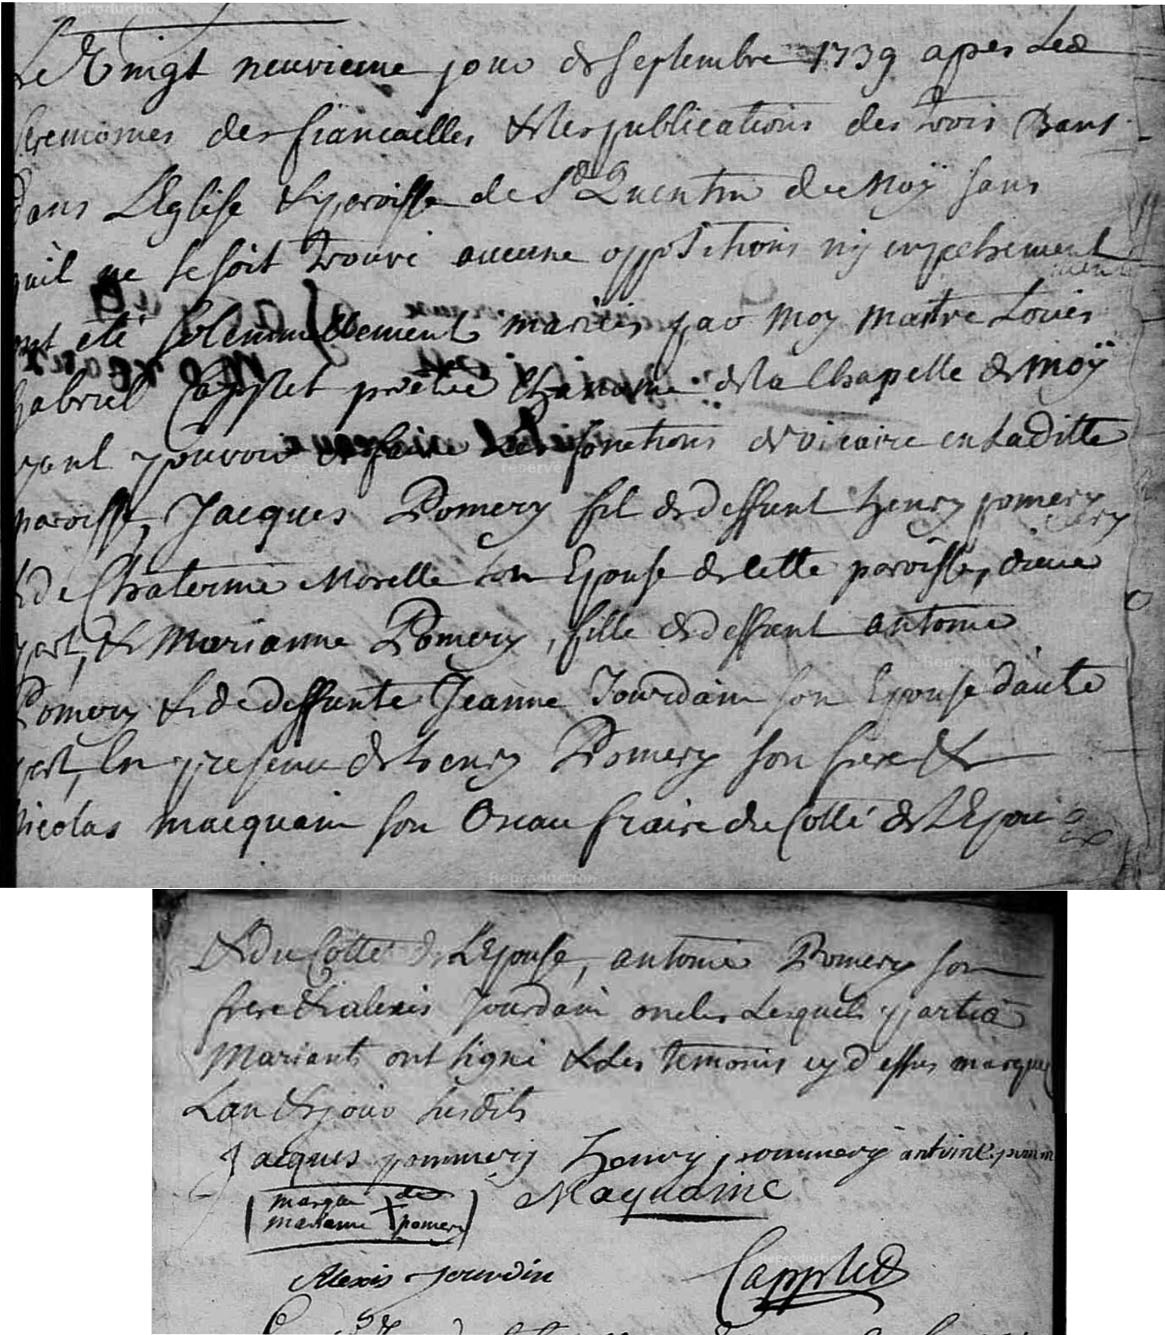 Le Vingt neuvieme jour de septembre 1739 apres Les
Ceremonies des fiancailles & les publications des trois Bans
dans L'Eglise & paroisse de St Quentin de Moÿ sans
quil ne se soit trouvé aucune oppositions nÿ empechement
ont été solemnellement mariés par moy maitre Louis
Gabriel Capplet pretre Chanoine de la Chapelle de moÿ
ayant pouvoir de faire Les fonctions de vicaire en Laditte
paroisse, Jacques Pomery fil de deffunt henry pomery
& de Chaterine Morelle son Epouse de cette paroisse, d'une
part, & Marianne Pomery, fille de deffunt antoine
Pomery & de deffunte Jeanne Jourdain son Epouse d'aute
part, En presence de henry Pomery son frere &
Nicolas macquain son Beau fraire du Cotté de L'Epou
& du Cotté de L'Epouse, antoine Pomery son
frere & alexis Jourdain oncle Lesquels partia
Mariants ont signé & Les temoins cy dessus marques
L'an & jour susdits
Jacques pommery henry pommery antoine pomm
marque de
marianne pomery
Maquaine
Alexis Jourdin
Capplet